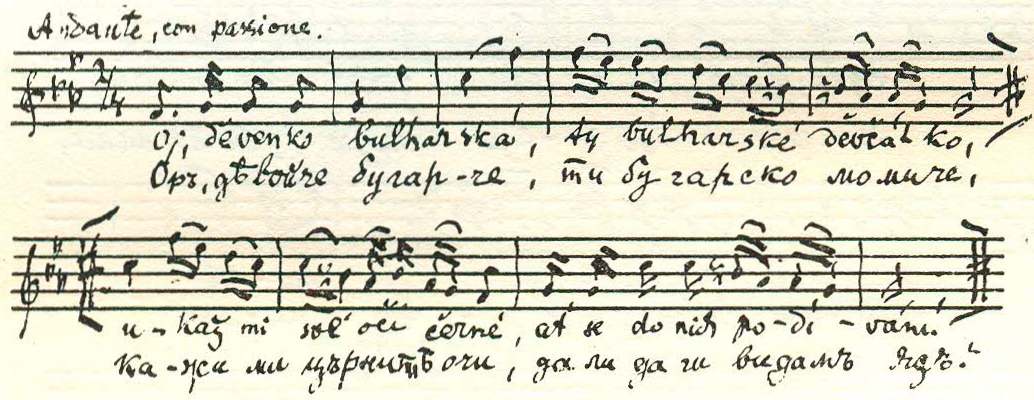 Andante, con passione.
2/4
Oj, děvenko bulharská, ty bulharské děvčátko,
Орь, дѣвойче бугар-че, ти бугарско момиче,
u-kaž mi své oči černé, ať se do nich po-dí-vám!
Ка-жи ми църнитѣ очи, да ли да ги видамъ язъ?